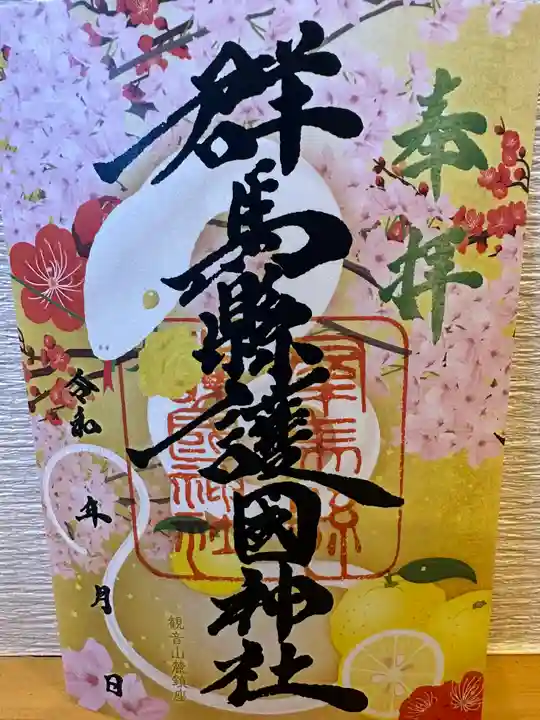 奉拝
群馬縣護國神社
群馬縣
護國神社
令和 年 月 日
観音山麓鎮座